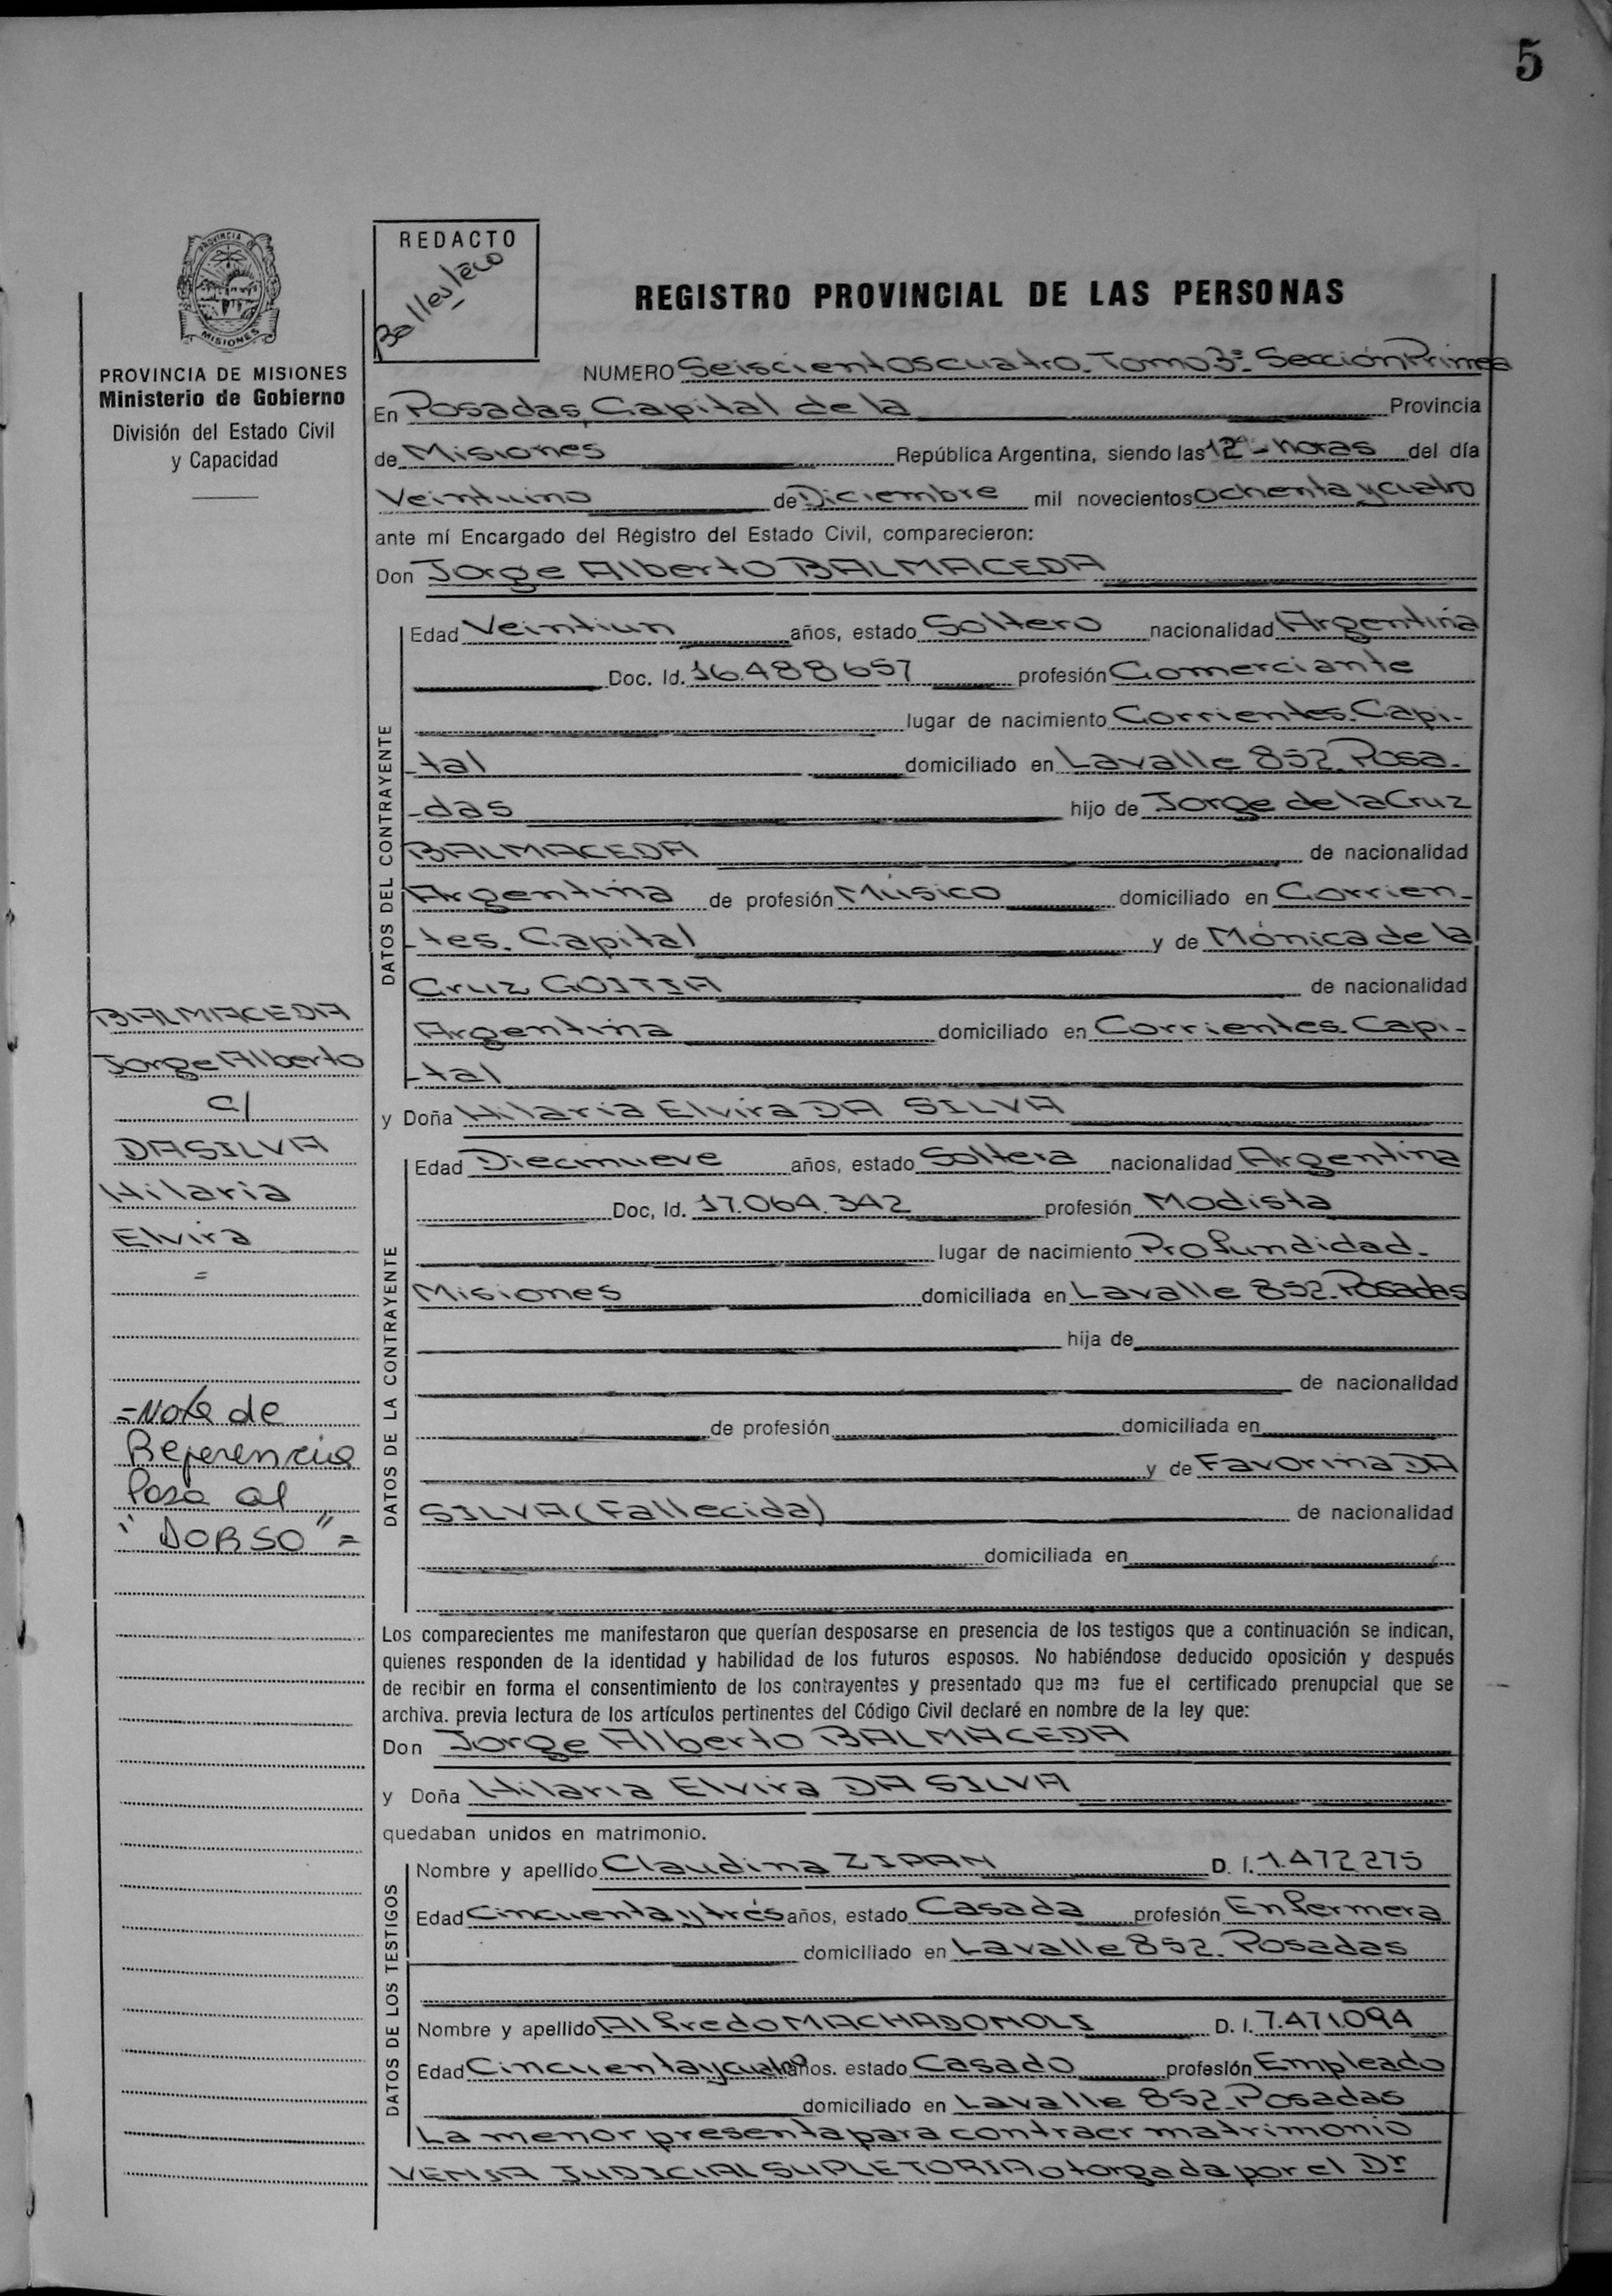 5
REDACTO
REGISTRO PROVINCIAL DE LAS PERSONAS
PROVINCIA
MISIONES
PROVINCIA DE MISIONES
Ministerio de Gobierno
División del Estado Civil
y Capacidad
NUMERO Seiscientos cuatro_ Tomo 3º_ Sección Primera
En Posadas, Capital de la Provincia
de Misiones República Argentina, siendo las 12 - horas del día
Veintiuno de Diciembre mil novecientos ochenta y cuatro
ante mí Encargado del Régistro del Estado Civil, comparecieron:
Don Jorge Alberto BALMACEDA
DATOS DEL CONTRAYENTE
Edad Veintiun años, estado Soltero nacionalidad Argentina
Doc. Id. 16.488657 profesión Comerciante
lugar de nacimiento Corrientes. Capi-
-tal domiciliado en Lavalle 852. Posa-
-das hijo de Jorge de la Cruz
BALMACEDA de nacionalidad
Argentina de profesión Músico domiciliado en Corrien-
-tes. Capital y de Mónica de la
Cruz GOITIA de nacionalidad
Argentina domiciliado en Corrientes. Capi-
-tal
y Doña Hilaria Elvira DA SILVA
DATOS DE LA CONTRAYENTE
Edad Diecinueve años, estado Soltera nacionalidad Argentina
Doc, Id. 17.064.342 profesión Modista
lugar de nacimiento Profundidad.
Misiones domiciliada en Lavalle 852. Posadas
hija de
de nacionalidad
de profesión domiciliada en
y de Favorina DA
SILVA (Fallecida) de nacionalidad
domiciliada en
BALMACEDA
Jorge Alberto
c/
DA SILVA
Hilaria
Elvira
=
=Nota de
Referencia
Pasa al
"DORSO"=
Los comparecientes me manifestaron que querían desposarse en presencia de los testigos que a continuación se indican,
quienes responden de la identidad y habilidad de los futuros esposos. No habiéndose deducido oposición y después
de recibir en forma el consentimiento de los contrayentes y presentado que me fue el certificado prenupcial que se
archiva. previa lectura de los artículos pertinentes del Código Civil declaré en nombre de la ley que:
Don Jorge Alberto BALMACEDA
y Doña Hilaria Elvira DA SILVA
quedaban unidos en matrimonio.
DATOS DE LOS TESTIGOS
Nombre y apellido Claudina ZIPAN D. I. 1.472275
Edad Cincuenta y trés años, estado Casada profesión Enfermera
domiciliado en Lavalle 852. Posadas
Nombre y apellido Alfredo MACHADO MOLI D. I. 7.471.094
Edad Cincuenta y cuatro años. estado Casado profesión Empleado
domiciliado en Lavalle 852_ Posadas
La menor presenta para contraer matrimonio
VENIA JUDICIAL SUPLETORIA otorgada por el Dr